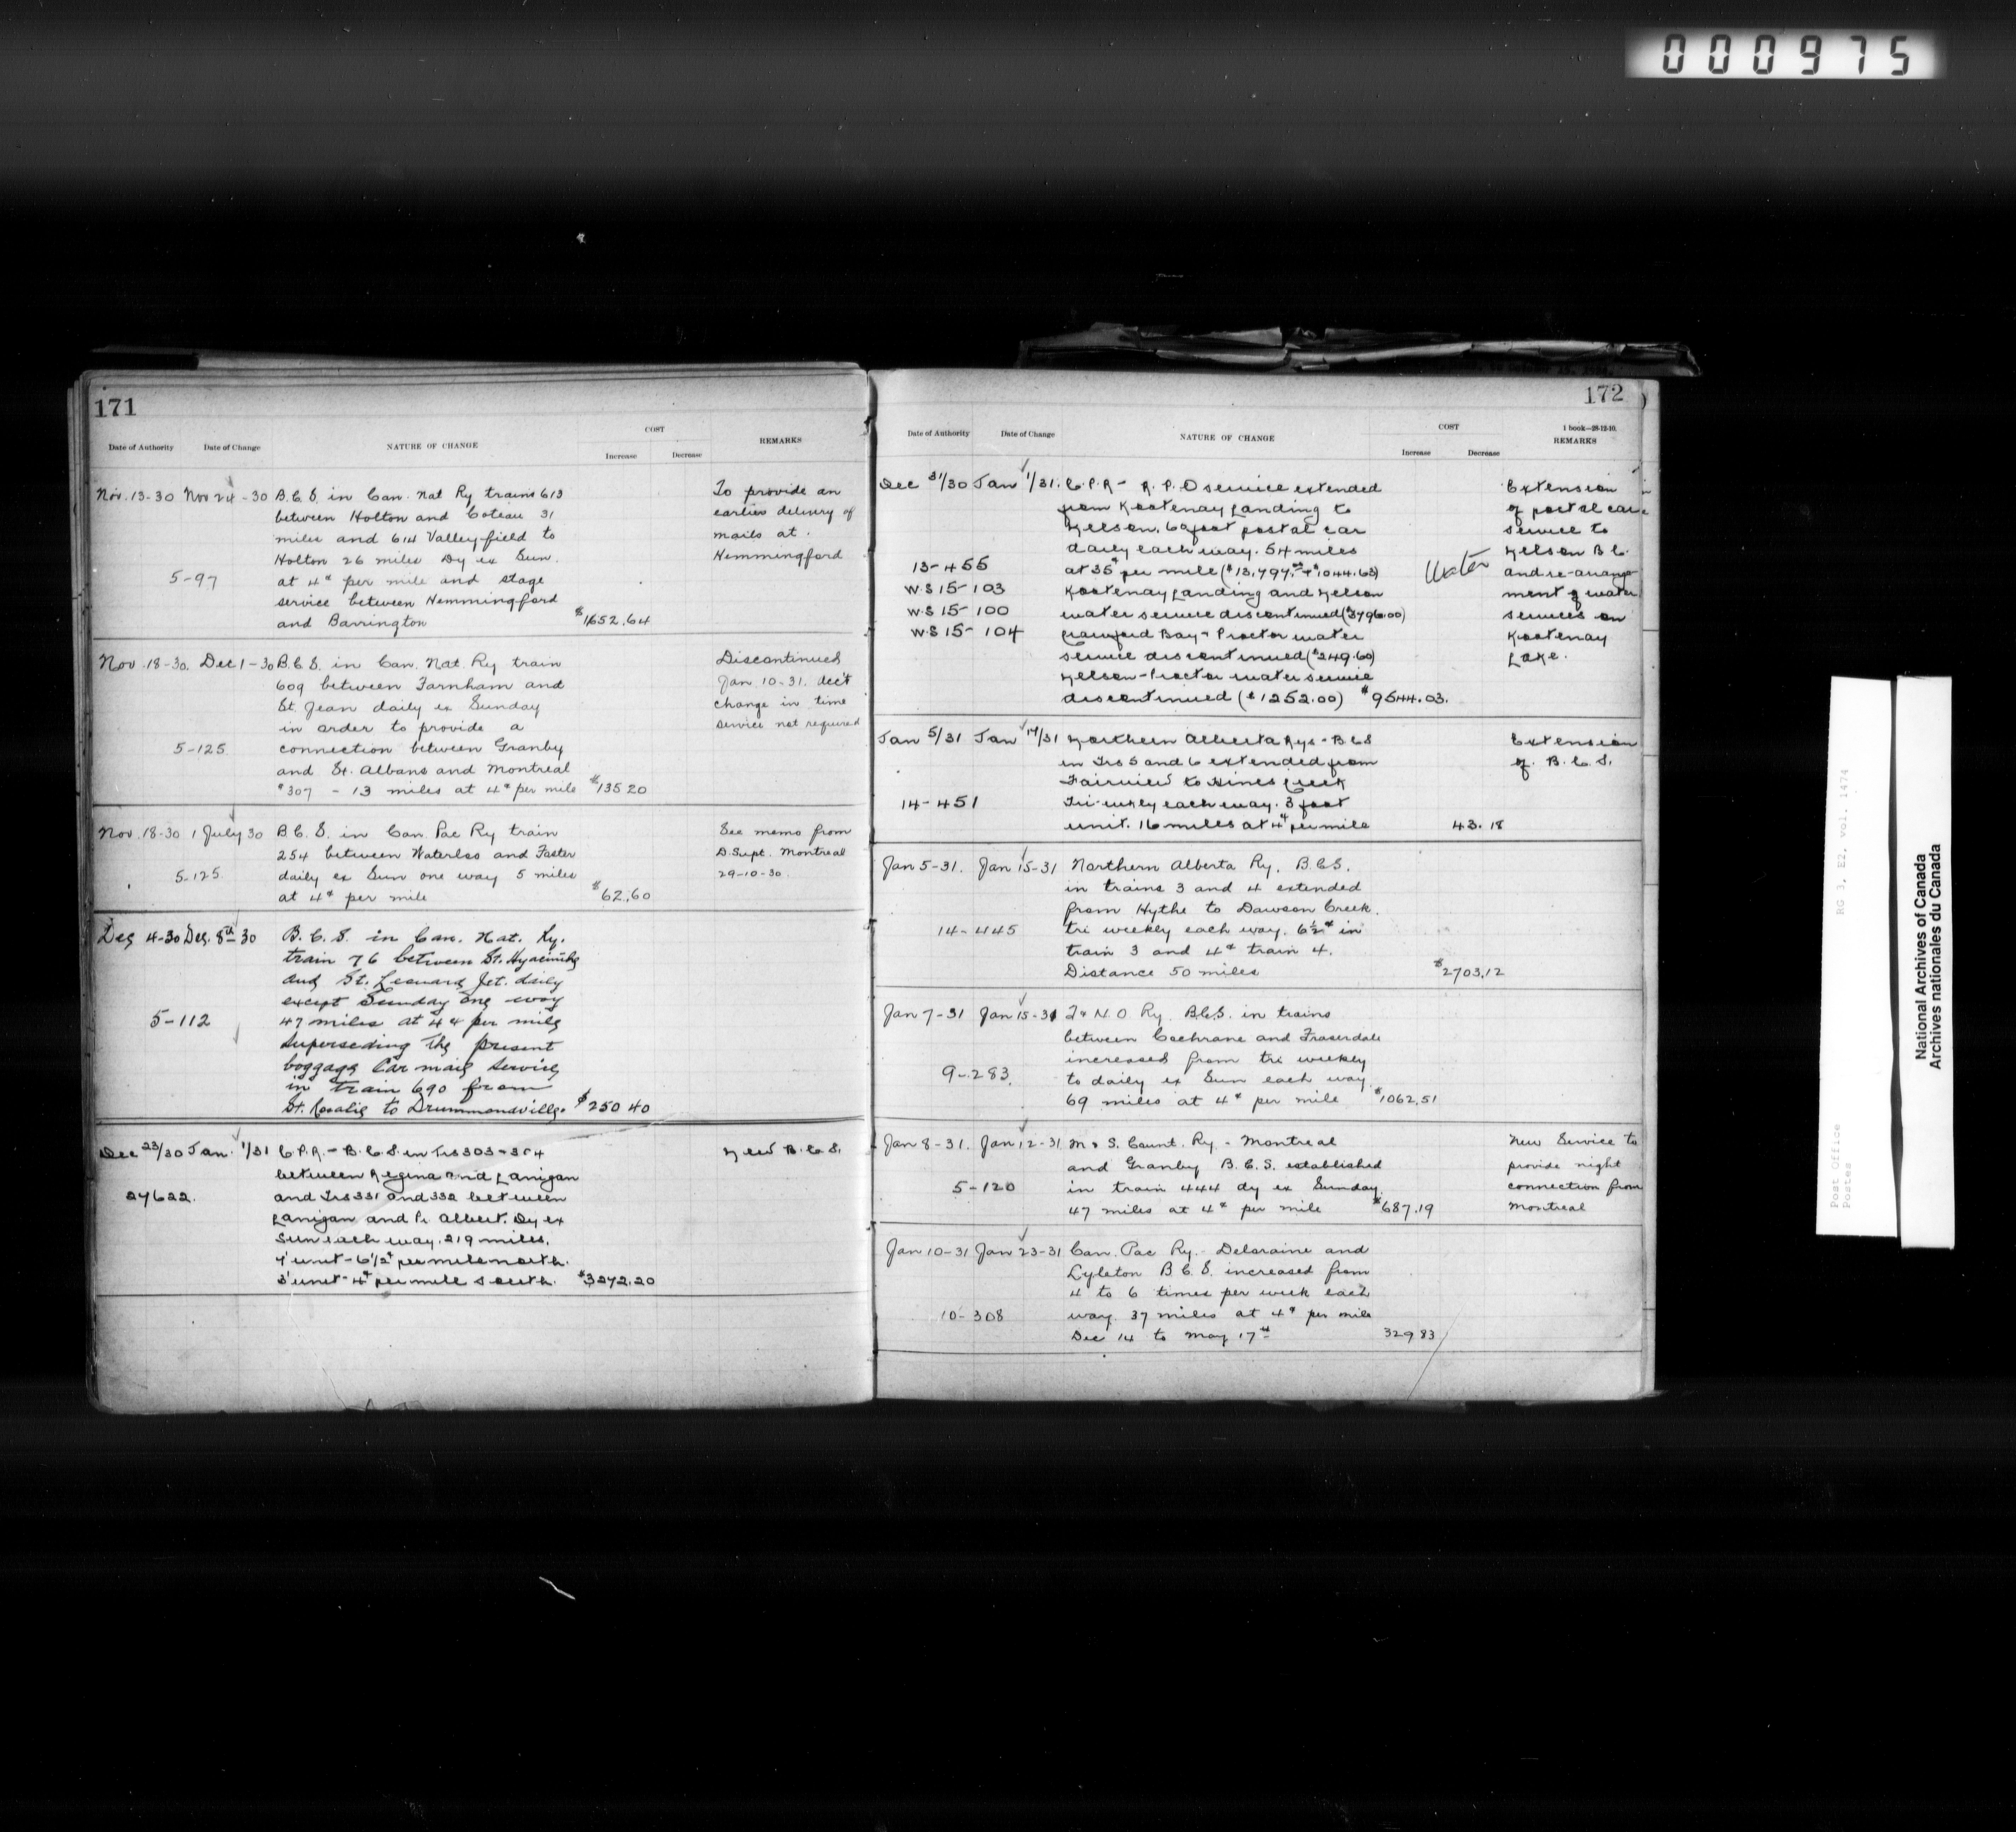 000975
171
COST
Date of Authority Date of Change NATURE OF CHANGE Increase Decrease REMARKS
Nov. 13-30 Nov 24-30 B.C.S. in Can. Nat Ry trains 613 To provide an
between Holton and Coteau 31 earlier delivery of
miles and 614 Valleyfield to mails at.
Holton 26 miles Dy ex Sun. Hemmingford
5-97 at 4¢ per mile and stage
service between Hemmingford
and Barrington $1652.64
Nov. 18-30. Dec 1-30 B.C.S. in Can. Nat. Ry train Discontinued
609 between Farnham and Jan. 10-31. dec't
St. Jean daily ex Sunday change in time
in order to provide a service not required
5-125 connection between Granby
and St. Albans and Montreal
- 13 miles at 4¢ per mile $135 20
Nov. 18-30 1 July 30 B.C.S. in Can. Pac Ry train See memo from
254 between Waterloo and Foster D. Supt. Montreal
5-125 daily ex Sun one way 5 miles 29-10-30.
at 4¢ per mile $62.60
Dec 4-30 Dec. 8th 30 B.C.S. in Can. Nat. Ry.
train 76 between St. Hyacinthe
and St. Leonard Jct. daily
except Sunday one way
5-112 47 miles at 4¢ per mile
superseding the present
baggage car mail service
in train 690 from
St. Rosalie to Drummondville. $250 40
Dec 23/30 Jan. 1/31 C.P.R. - B.C.S. in Trs 303-304 New B.C.S.
between Regina and Lanigan
27622. and Trs 331 and 332 between
Lanigan and Pr Albert. Dy ex
Sun each way. 219 miles.
unit - 6 1/2¢ per mile north.
3' unit - 4¢ per mile south. $3272.20
172
COST 1 book-28-12-10.
Date of Authority Date of Change NATURE OF CHANGE Increase Decrease REMARKS
Dec 31/30 Jan 1/31. C.P.R - R.P.O service extended Extension
from Kootenay Landing to of postal car
Nelson. 60 foot postal car service to
daily each way. 54 miles Nelson B.C.
13-455 at 35¢ per mile ( + $1044.63) Water and re-arrange
W.S 15-103 Kootenay Landing and Nelson ment of water
W.S 15-100 water service discontinued ($3796.00) services on
W.S 15-104 Crawford Bay - Proctor water Kootenay
service discontinued ($249.60) Lake.
Nelson-Proctor water service
discontinued ($1252.00) $9544.03.
Jan 5/31 Jan 14/31 Northern Alberta Rys - B.C.S Extension
in Trs 5 and 6 extended from of B.C.S.
Fairview to Hines Creek
14-451 Tri-wkly each way. 3 foot
unit. 16 miles at 4¢ per mile 43.18
Jan 5-31. Jan 15-31 Northern Alberta Ry. B.C.S.
in trains 3 and 4 extended
from Hythe to Dawson Creek.
14-445 tri weekly each way. 6½¢ in
train 3 and 4¢ train 4.
Distance 50 miles $2703.12
Jan 7-31 Jan 15-31 T & N.O Ry. B.C.S. in trains
between Cochrane and Fraserdale
increased from tri weekly
9-283. to daily ex Sun each way
69 miles at 4¢ per mile $1062.51
Jan 8-31. Jan 12-31 M & S. Count. Ry - Montreal New Service to
and Granby B.C.S. established provide night
5-120 in train 444 dy ex Sunday. connection from
47 miles at 4¢ per mile $687.19 Montreal
Jan 10-31 Jan 23-31 Can. Pac Ry. - Deloraine and
Lyleton B.C.S. increased from
4 to 6 times per week each
10-308 way. 37 miles at 4¢ per mile
Dec 14 to May 17th 329 83
Post Office
Postes
RG 3, E2, vol. 1474
National Archives of Canada
Archives nationales du Canada